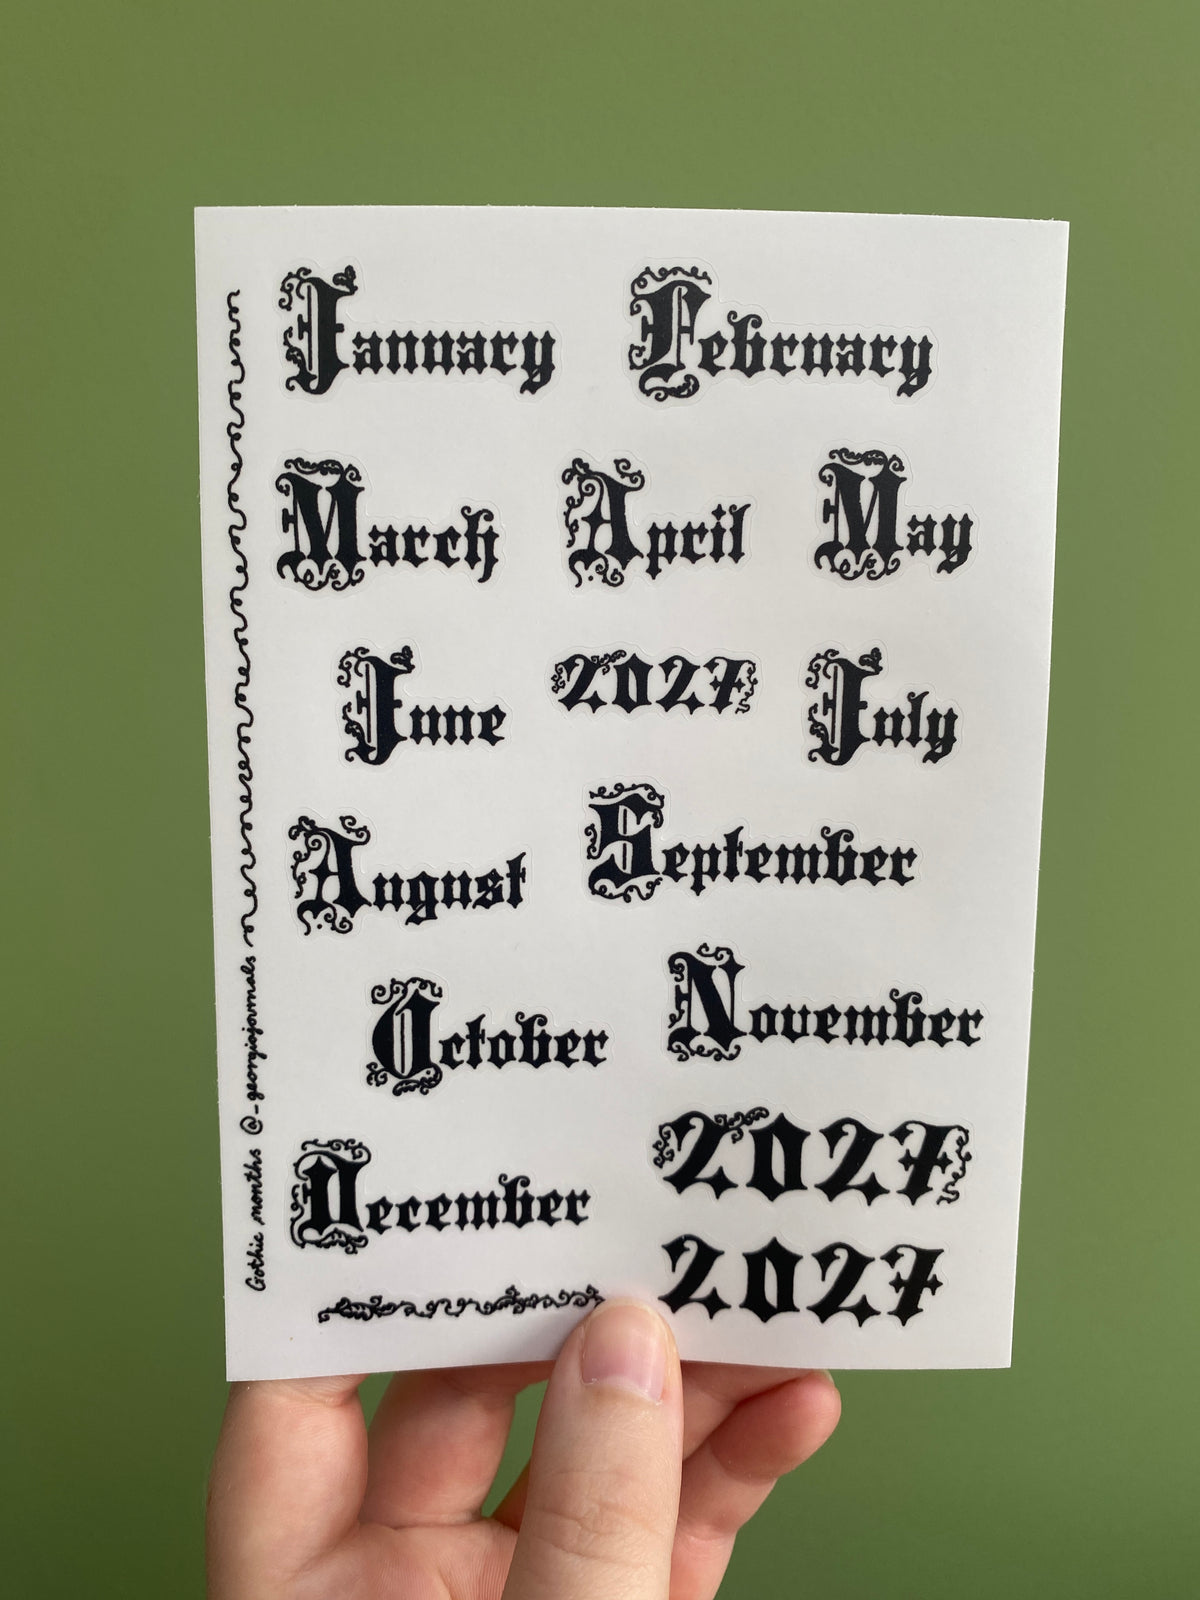 January February
March April May
June 2027 July
August September
October November
December 2027
2027
Gothic months @_georgiojournals